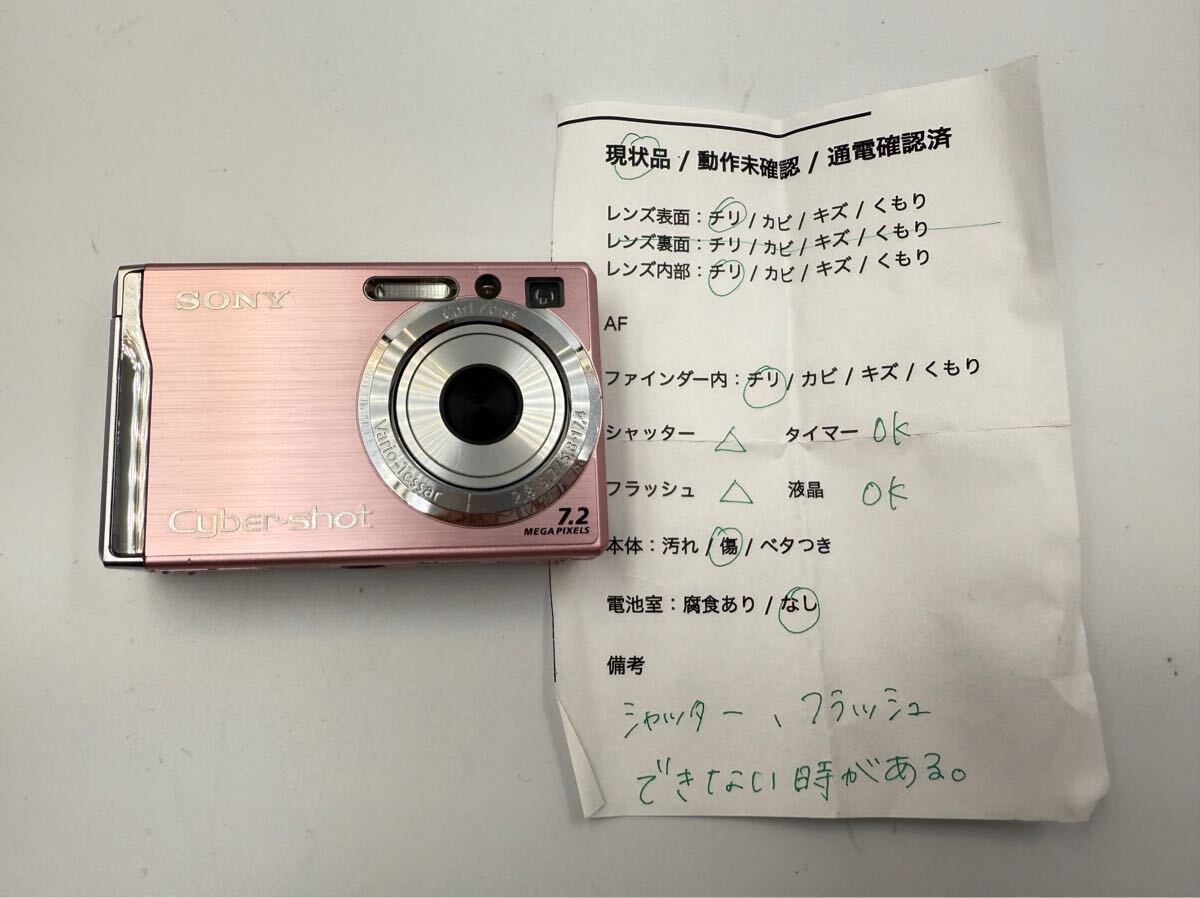 SONY
Carl Zeiss
Vario-Tessar
Cyber-shot
7.2
MEGA PIXELS
現状品 / 動作未確認 / 通電確認済
レンズ表面：チリ / カビ / キズ / くもり
レンズ裏面：チリ / カビ / キズ / くもり
レンズ内部：チリ / カビ / キズ / くもり
AF
ファインダー内：チリ / カビ / キズ / くもり
シャッター △ タイマー OK
フラッシュ △ 液晶 OK
本体：汚れ / 傷 / ベタつき
電池室：腐食あり / なし
備考
シャッター、フラッシュ
できない時がある。